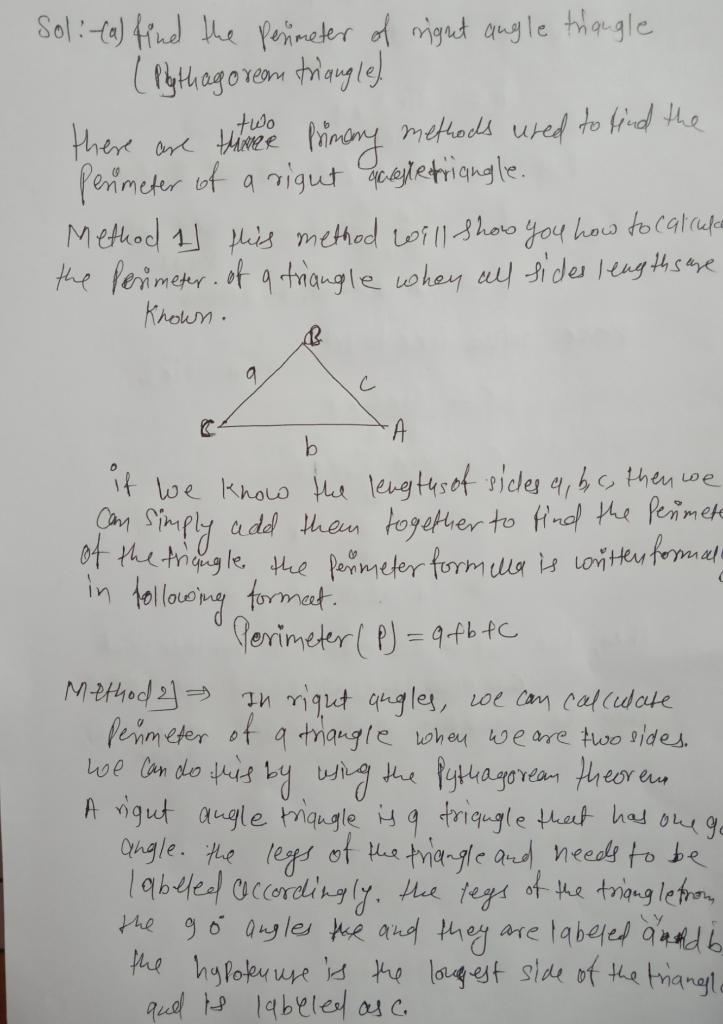 Sol:-(a) find the perimeter of right angle triangle
(Pythagorean triangle).
two
there are three Primary methods used to find the
Perimeter of a right angletriangle.
Method 1] this method will show you how to calcula
the Perimeter. of a triangle when all sides lengths are
known.
B
a
c
C
A
b
if we know the lengths of sides a, b, c, then we
can simply add them together to find the Perimete
of the triangle. the perimeter formula is written formal
in following format.
Perimeter (P) = a+b+c
Method 2] ⇒ In right angles, we can calculate
Perimeter of a triangle when we are two sides.
we can do this by using the Pythagorean theorem
A right angle triangle is a triangle that has one 90
angle. the legs of the triangle and needs to be
labelled accordingly. the legs of the triangle from
the 90° angles the and they are labeled a and b
the hypotenuse is the longest side of the triangle
and is labeled as c.